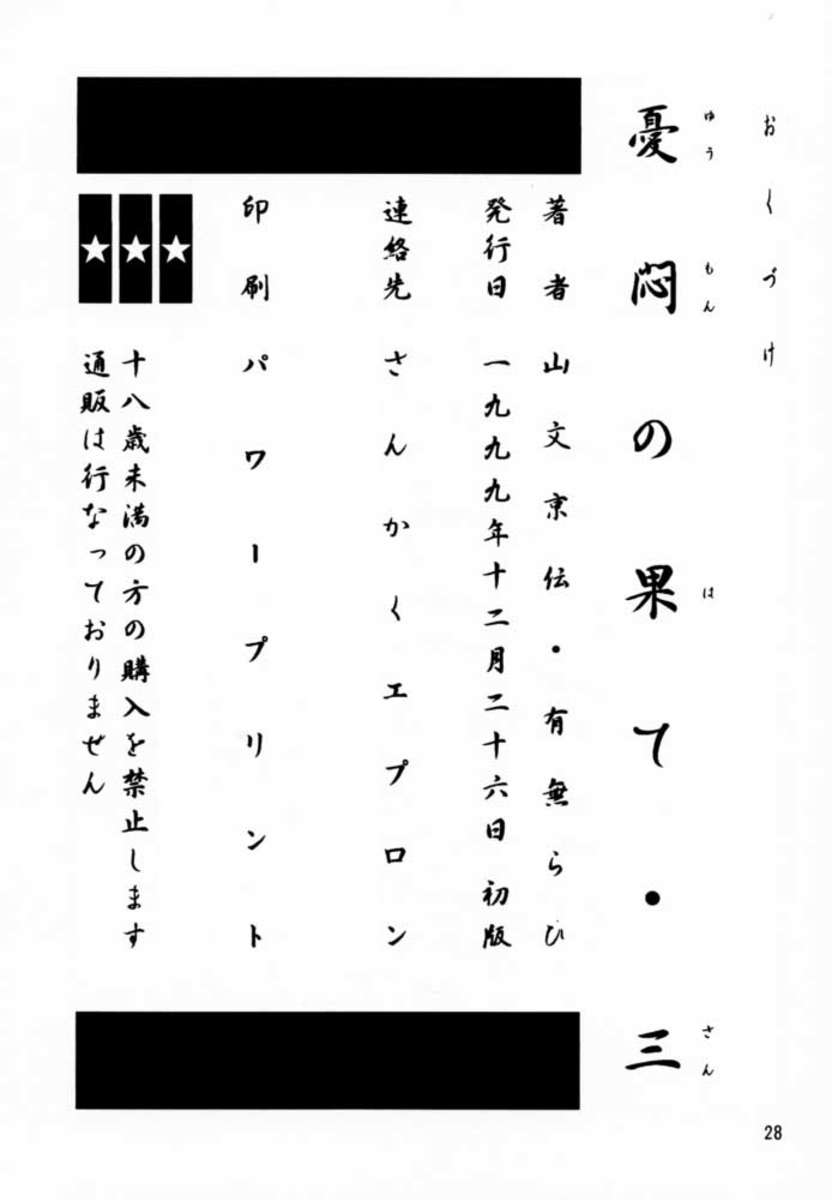 おくづけ
憂悶の果て・三
ゆうもんはさん
著者 山文京伝・有無らひ
発行日 一九九九年十二月二十六日 初版
連絡先 さんかくエプロン
印刷 パワープリント
★★★
十八歳未満の方の購入を禁止します
通販は行なっておりません
28